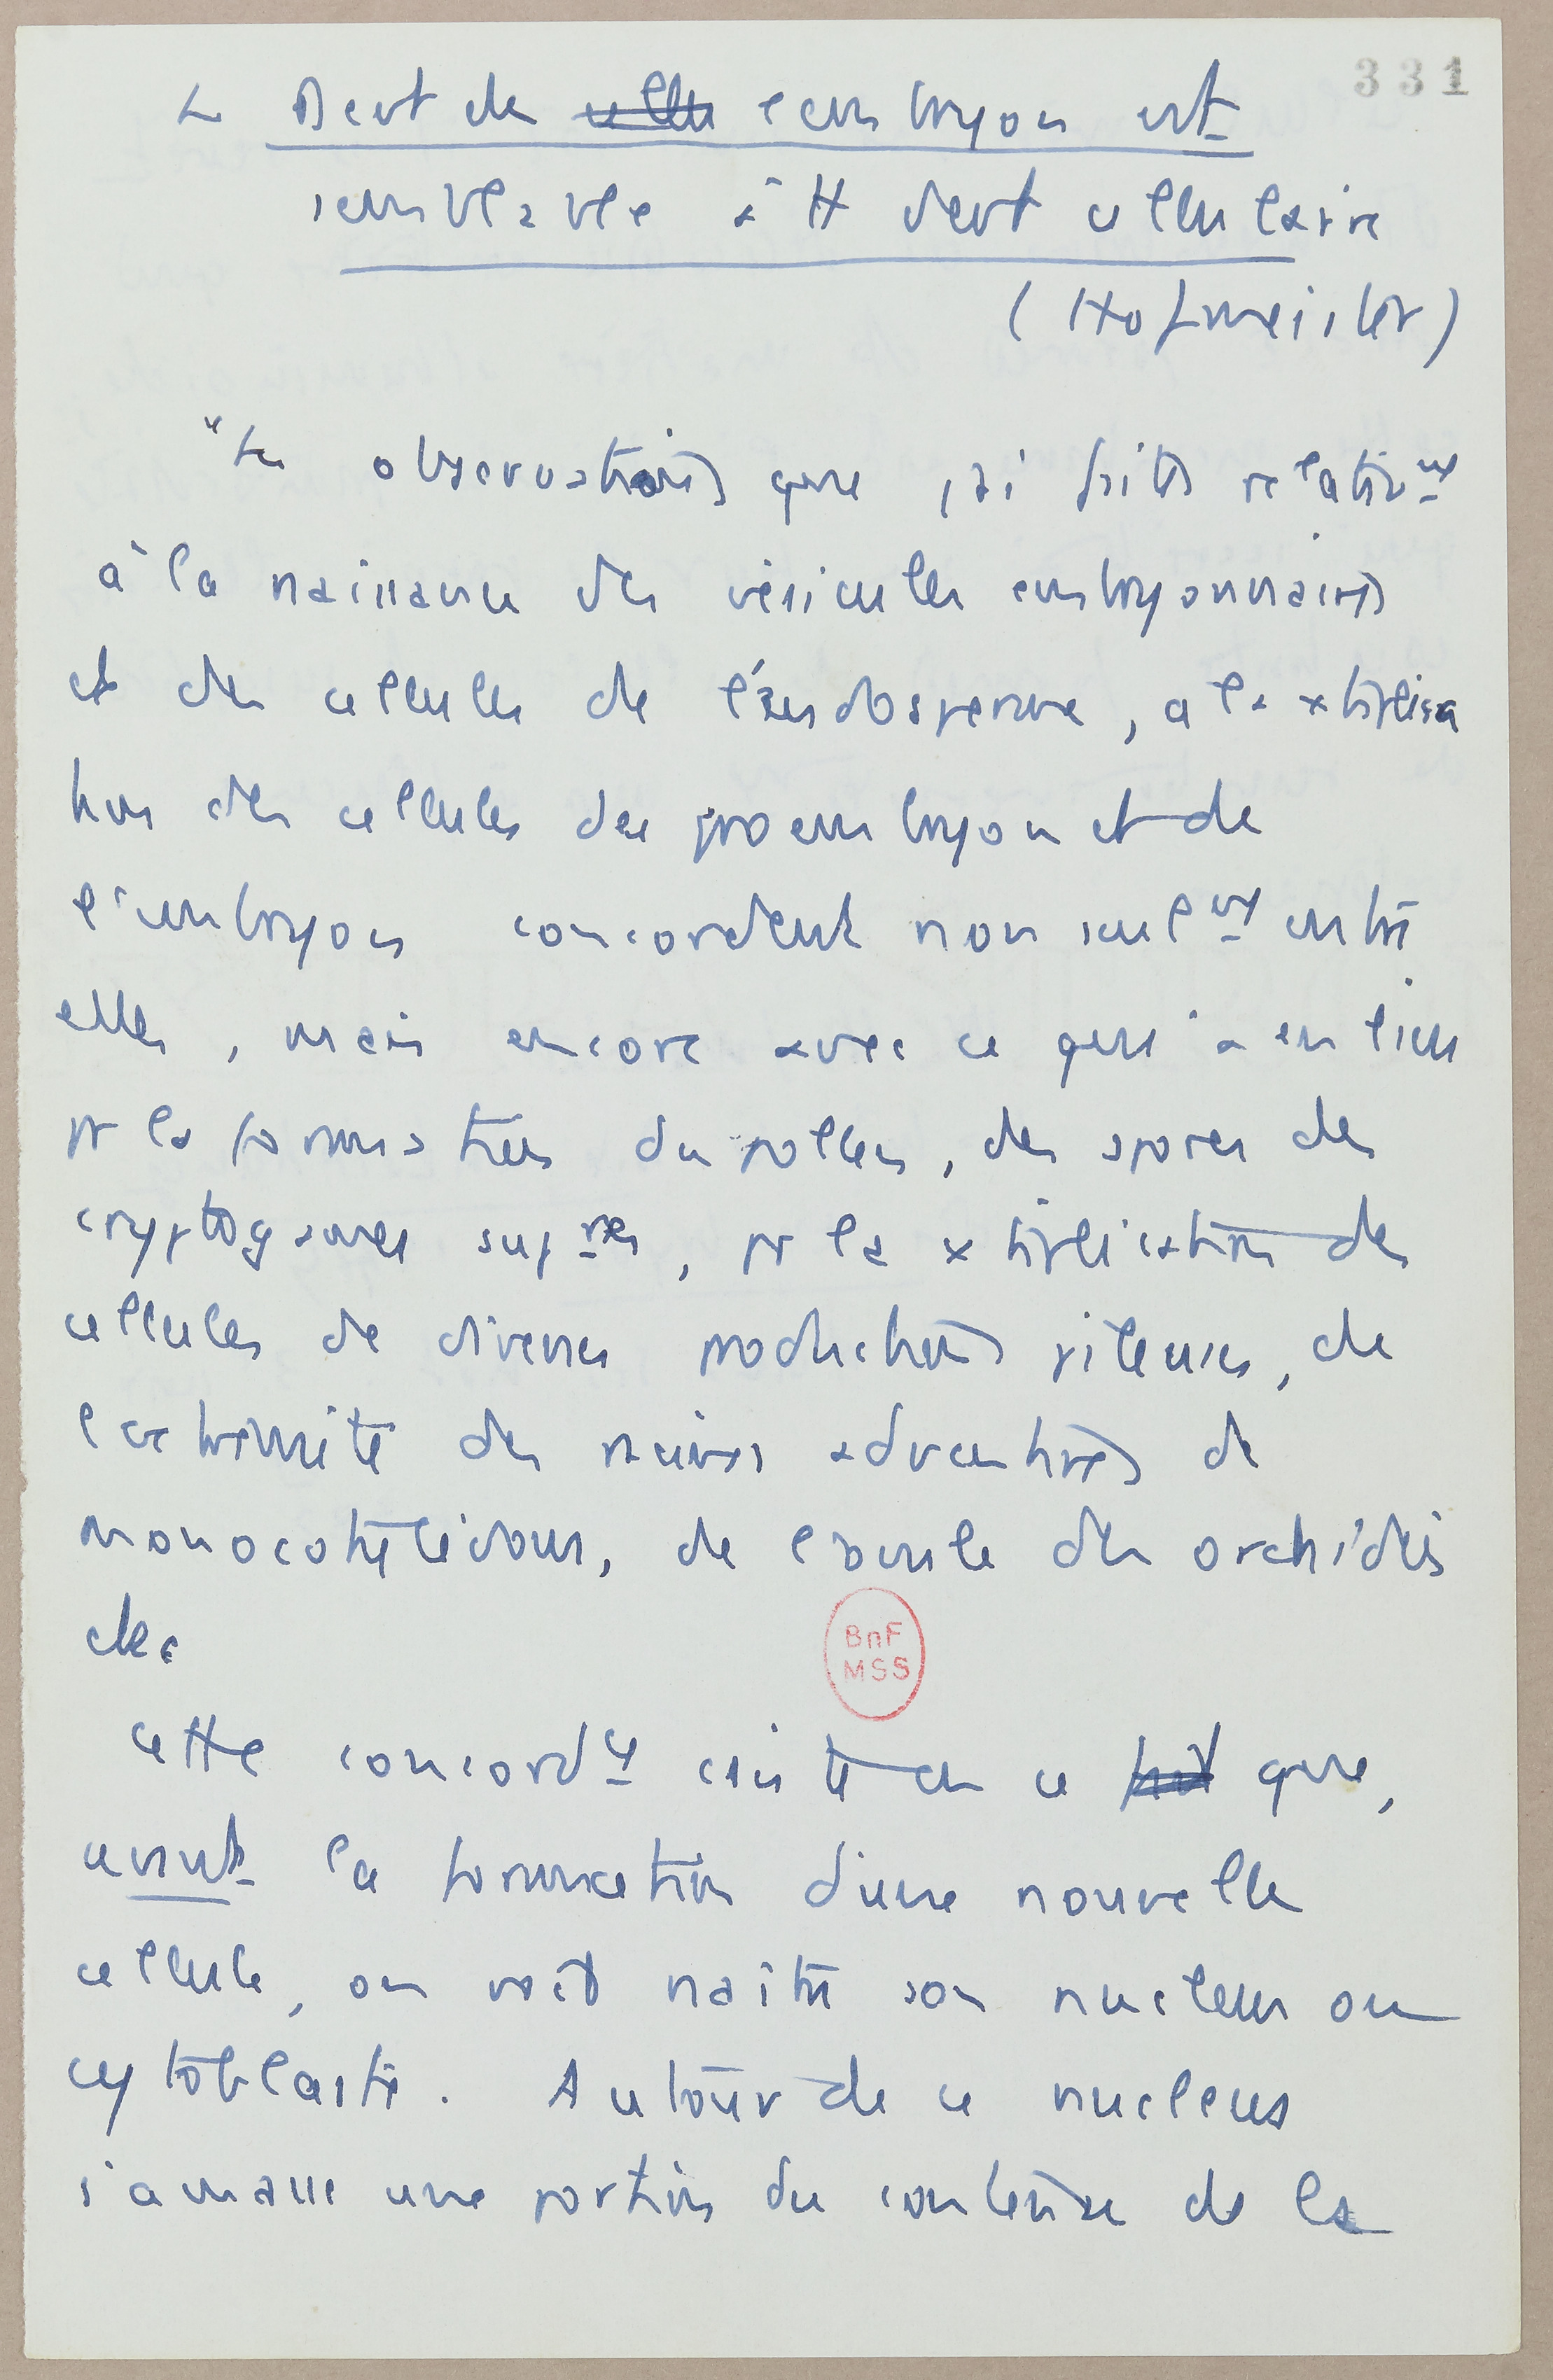 331
Le Devt de cellu l'embryon est
semblable à tt devt cellulaire
(Hofmeister)
"Les observations que j'ai faites relativmt
à la naissance des vésicules embryonnaires
et des cellules de l'endosperme, a la xtiplica
tion des cellules du proembryon et de
l'embryon concordent non seulmt entre
elles, mais encore avec ce qui a eu lieu
pr la formation du pollen, des spores des
cryptogames supres, pr la xtiplication des
cellules de diverses productions pileuses, de
l'extrémité des racines adventives de
monocotylédones, de l'ovule des orchidées
etc.
Cette concordce existe en ce fait que,
avant la formation d'une nouvelle
cellule, on voit naître son nucleus ou
cytoblaste. Autour de ce nucleus
s'amasse une portion du contenu de la
BnF
MSS